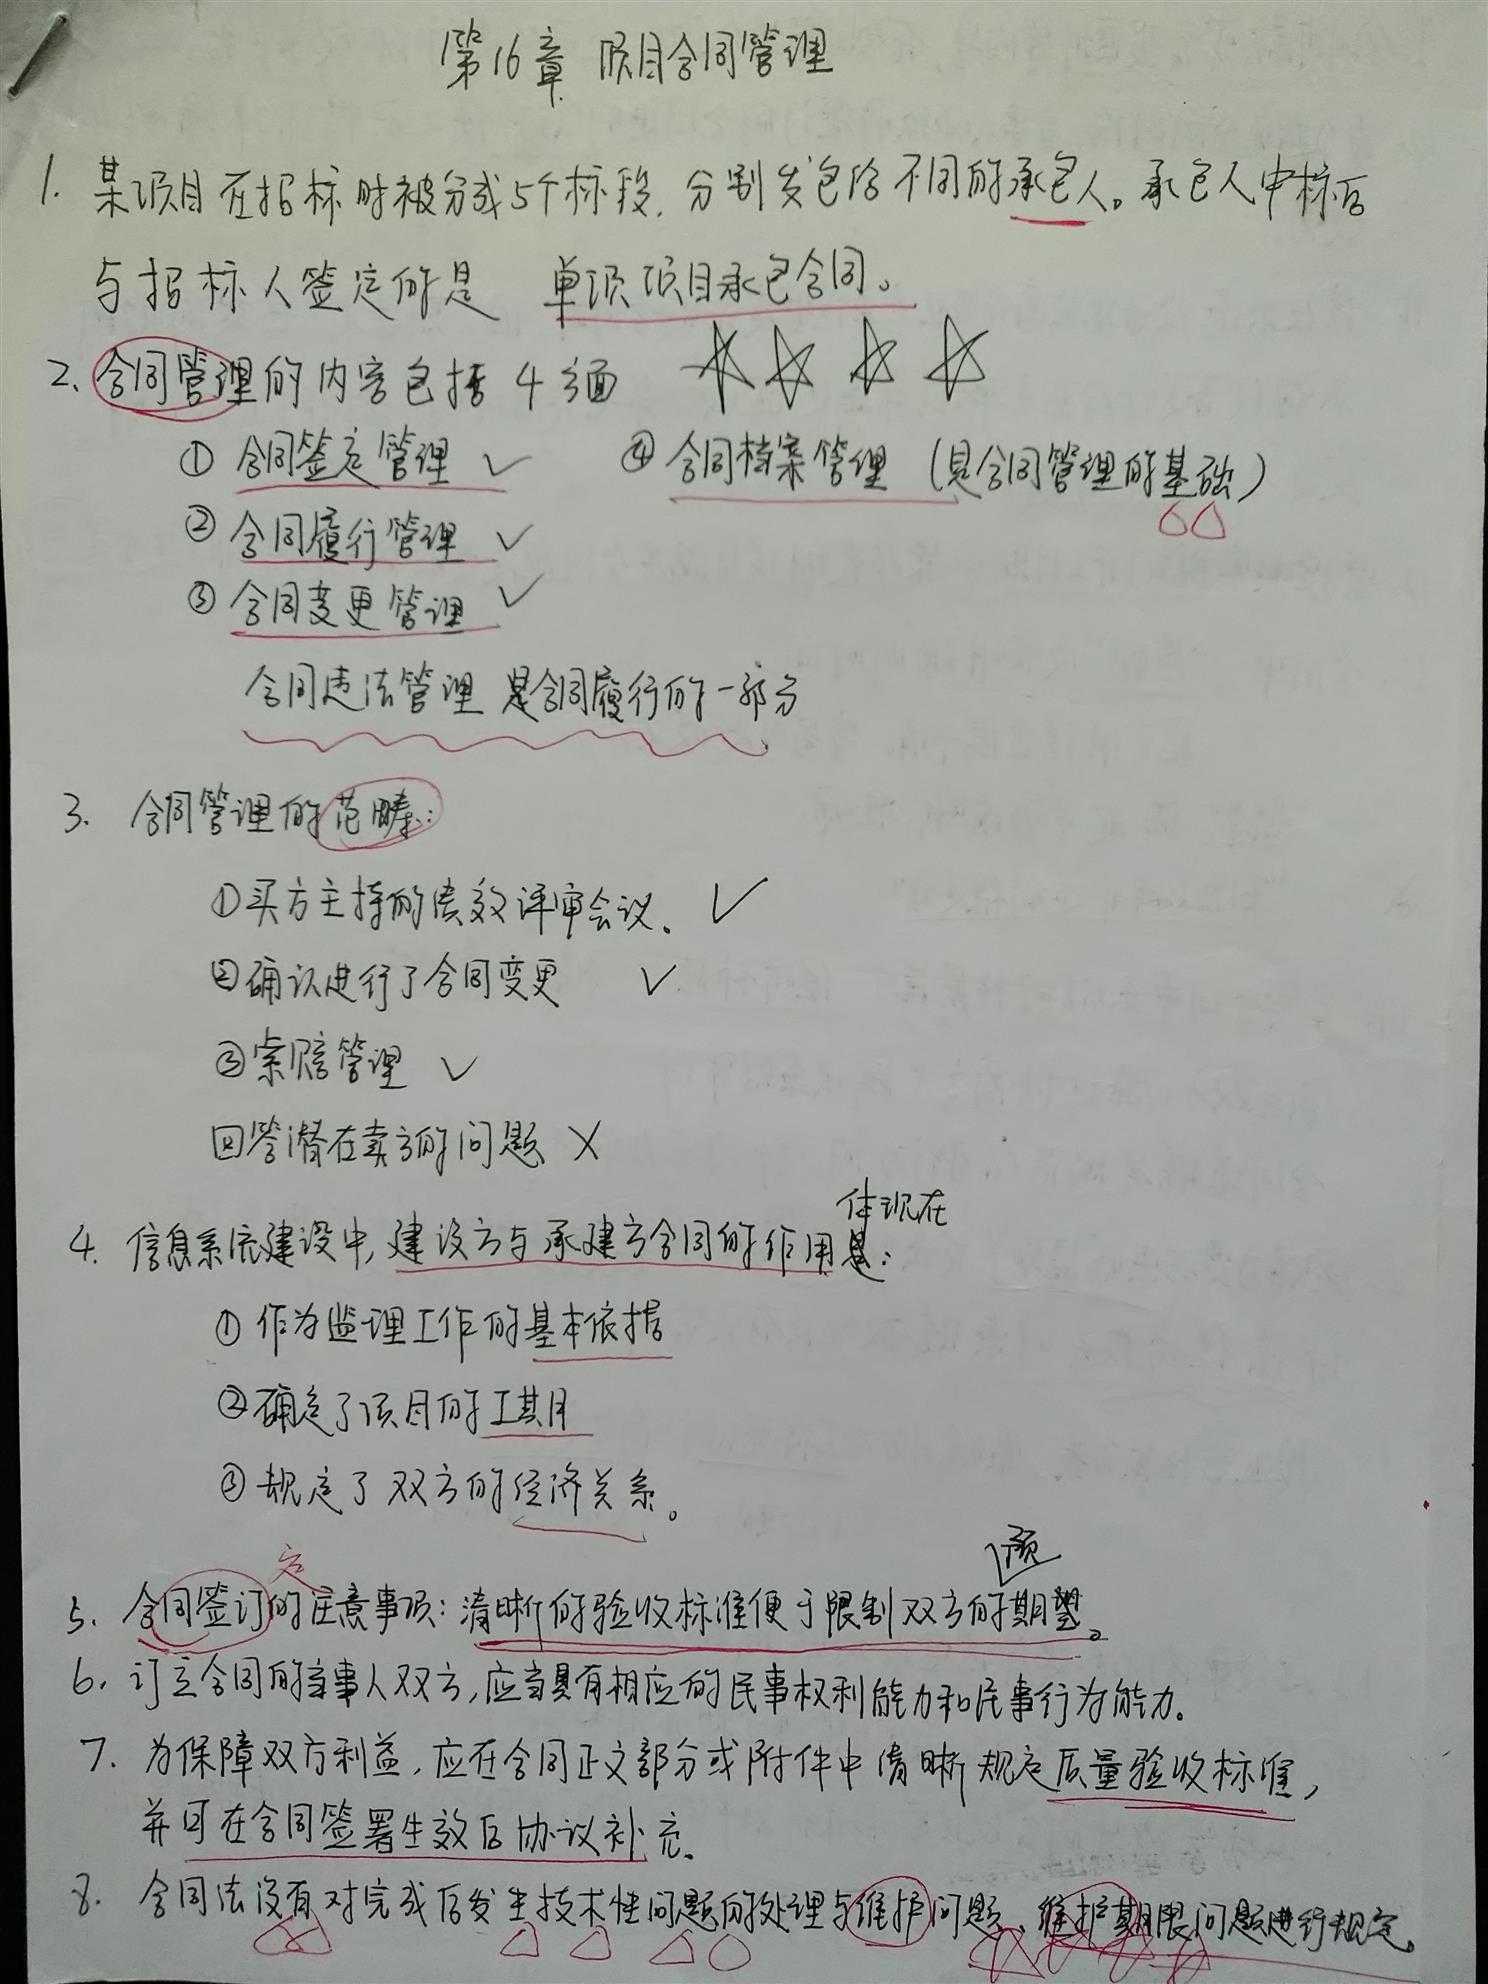 第16章 项目合同管理
1. 某项目在招标时被分成5个标段,分别发包给不同的承包人。承包人中标后
与招标人签定的是 单项项目承包合同。
2、合同管理的内容包括4方面 ☆☆☆☆
① 合同签定管理 ✓ ④ 合同档案管理 (是合同管理的基础)
② 合同履行管理 ✓
③ 合同变更管理 ✓
合同违法管理 是合同履行的一部分
3. 合同管理的范畴:
①买方主持的绩效评审会议。 ✓
②确认进行了合同变更 ✓
③索赔管理 ✓
④回答潜在卖方的问题 ×
体现在
4. 信息系统建设中,建设方与承建方合同的作用是:
① 作为监理工作的基本依据
②确定了项目的工期
③规定了双方的经济关系。
定 预
5. 合同签订的注意事项:清晰的验收标准便于限制双方的期望。
6. 订立合同的当事人双方,应当具有相应的民事权利能力和民事行为能力。
7. 为保障双方利益,应在合同正文部分或附件中清晰规定质量验收标准,
并可在合同签署生效后协议补充。
8. 合同法没有对完成后发生技术性问题的处理与维护问题、维护期限问题进行规定。